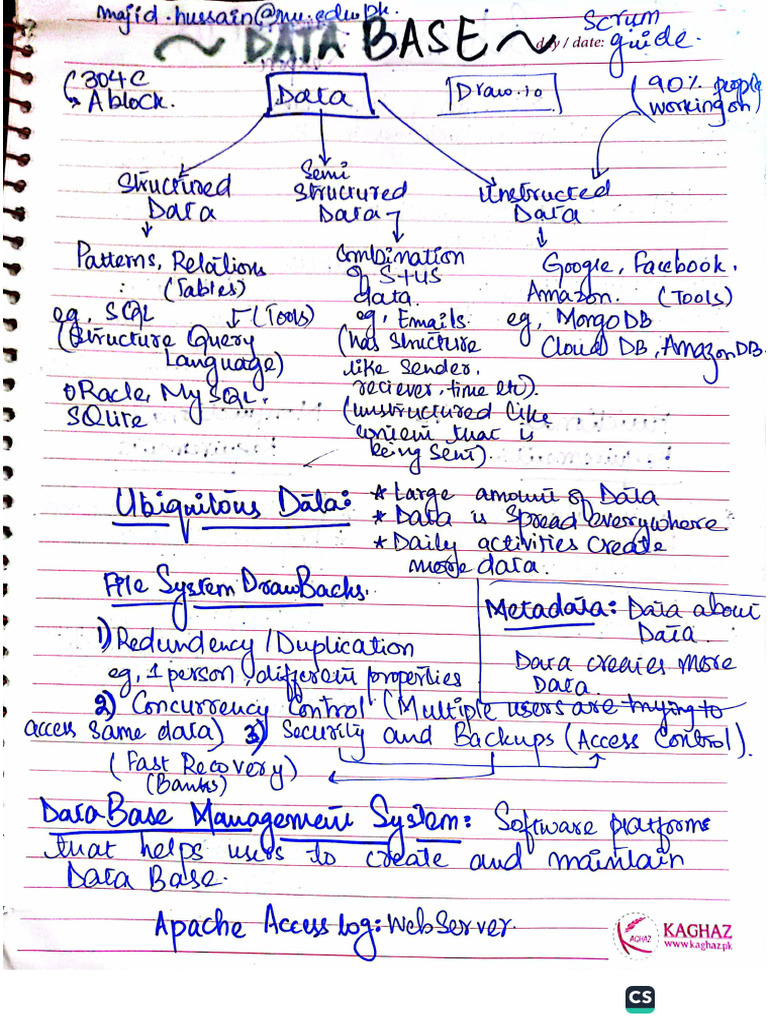 majid.hussain@mu.edu.pk.
Scrum
~ DATA BASE ~ day / date: guide.
304 C
A block.
Data
Draw.io
(90% people
working on)
Structured
Data
Semi
Structured
Data
Unstructed
Data
Patterns, Relations
(Tables)
eg, SQL (Tools)
(Structure Query
Language)
oRacle, My SQL,
SQLite
Combination
of S+US
data.
eg, Emails.
(has structure
like sender,
reciever, time etc).
(unstructured like
content that is
being sent).
Google, Facebook,
Amazon. (Tools)
eg, MongoDB
Cloud DB, AmazonDB.
Ubiquitous Data:
* Large amount of Data
* Data is spread everywhere
* Daily activities create
more data.
File System DrawBacks.
1) Redundency / Duplication
eg, 1 person, different properties
Metadata: Data about
Data.
Data creates more
Data.
2) Concurrency Control (Multiple users are trying to
access same data) 3) Security and Backups (Access Control).
(Fast Recovery)
(Banks)
DataBase Management System: Software platforms
that helps users to create and maintain
Data Base.
Apache Access log: WebServer.
KAGHAZ
KAGHAZ
www.kaghaz.pk
CS